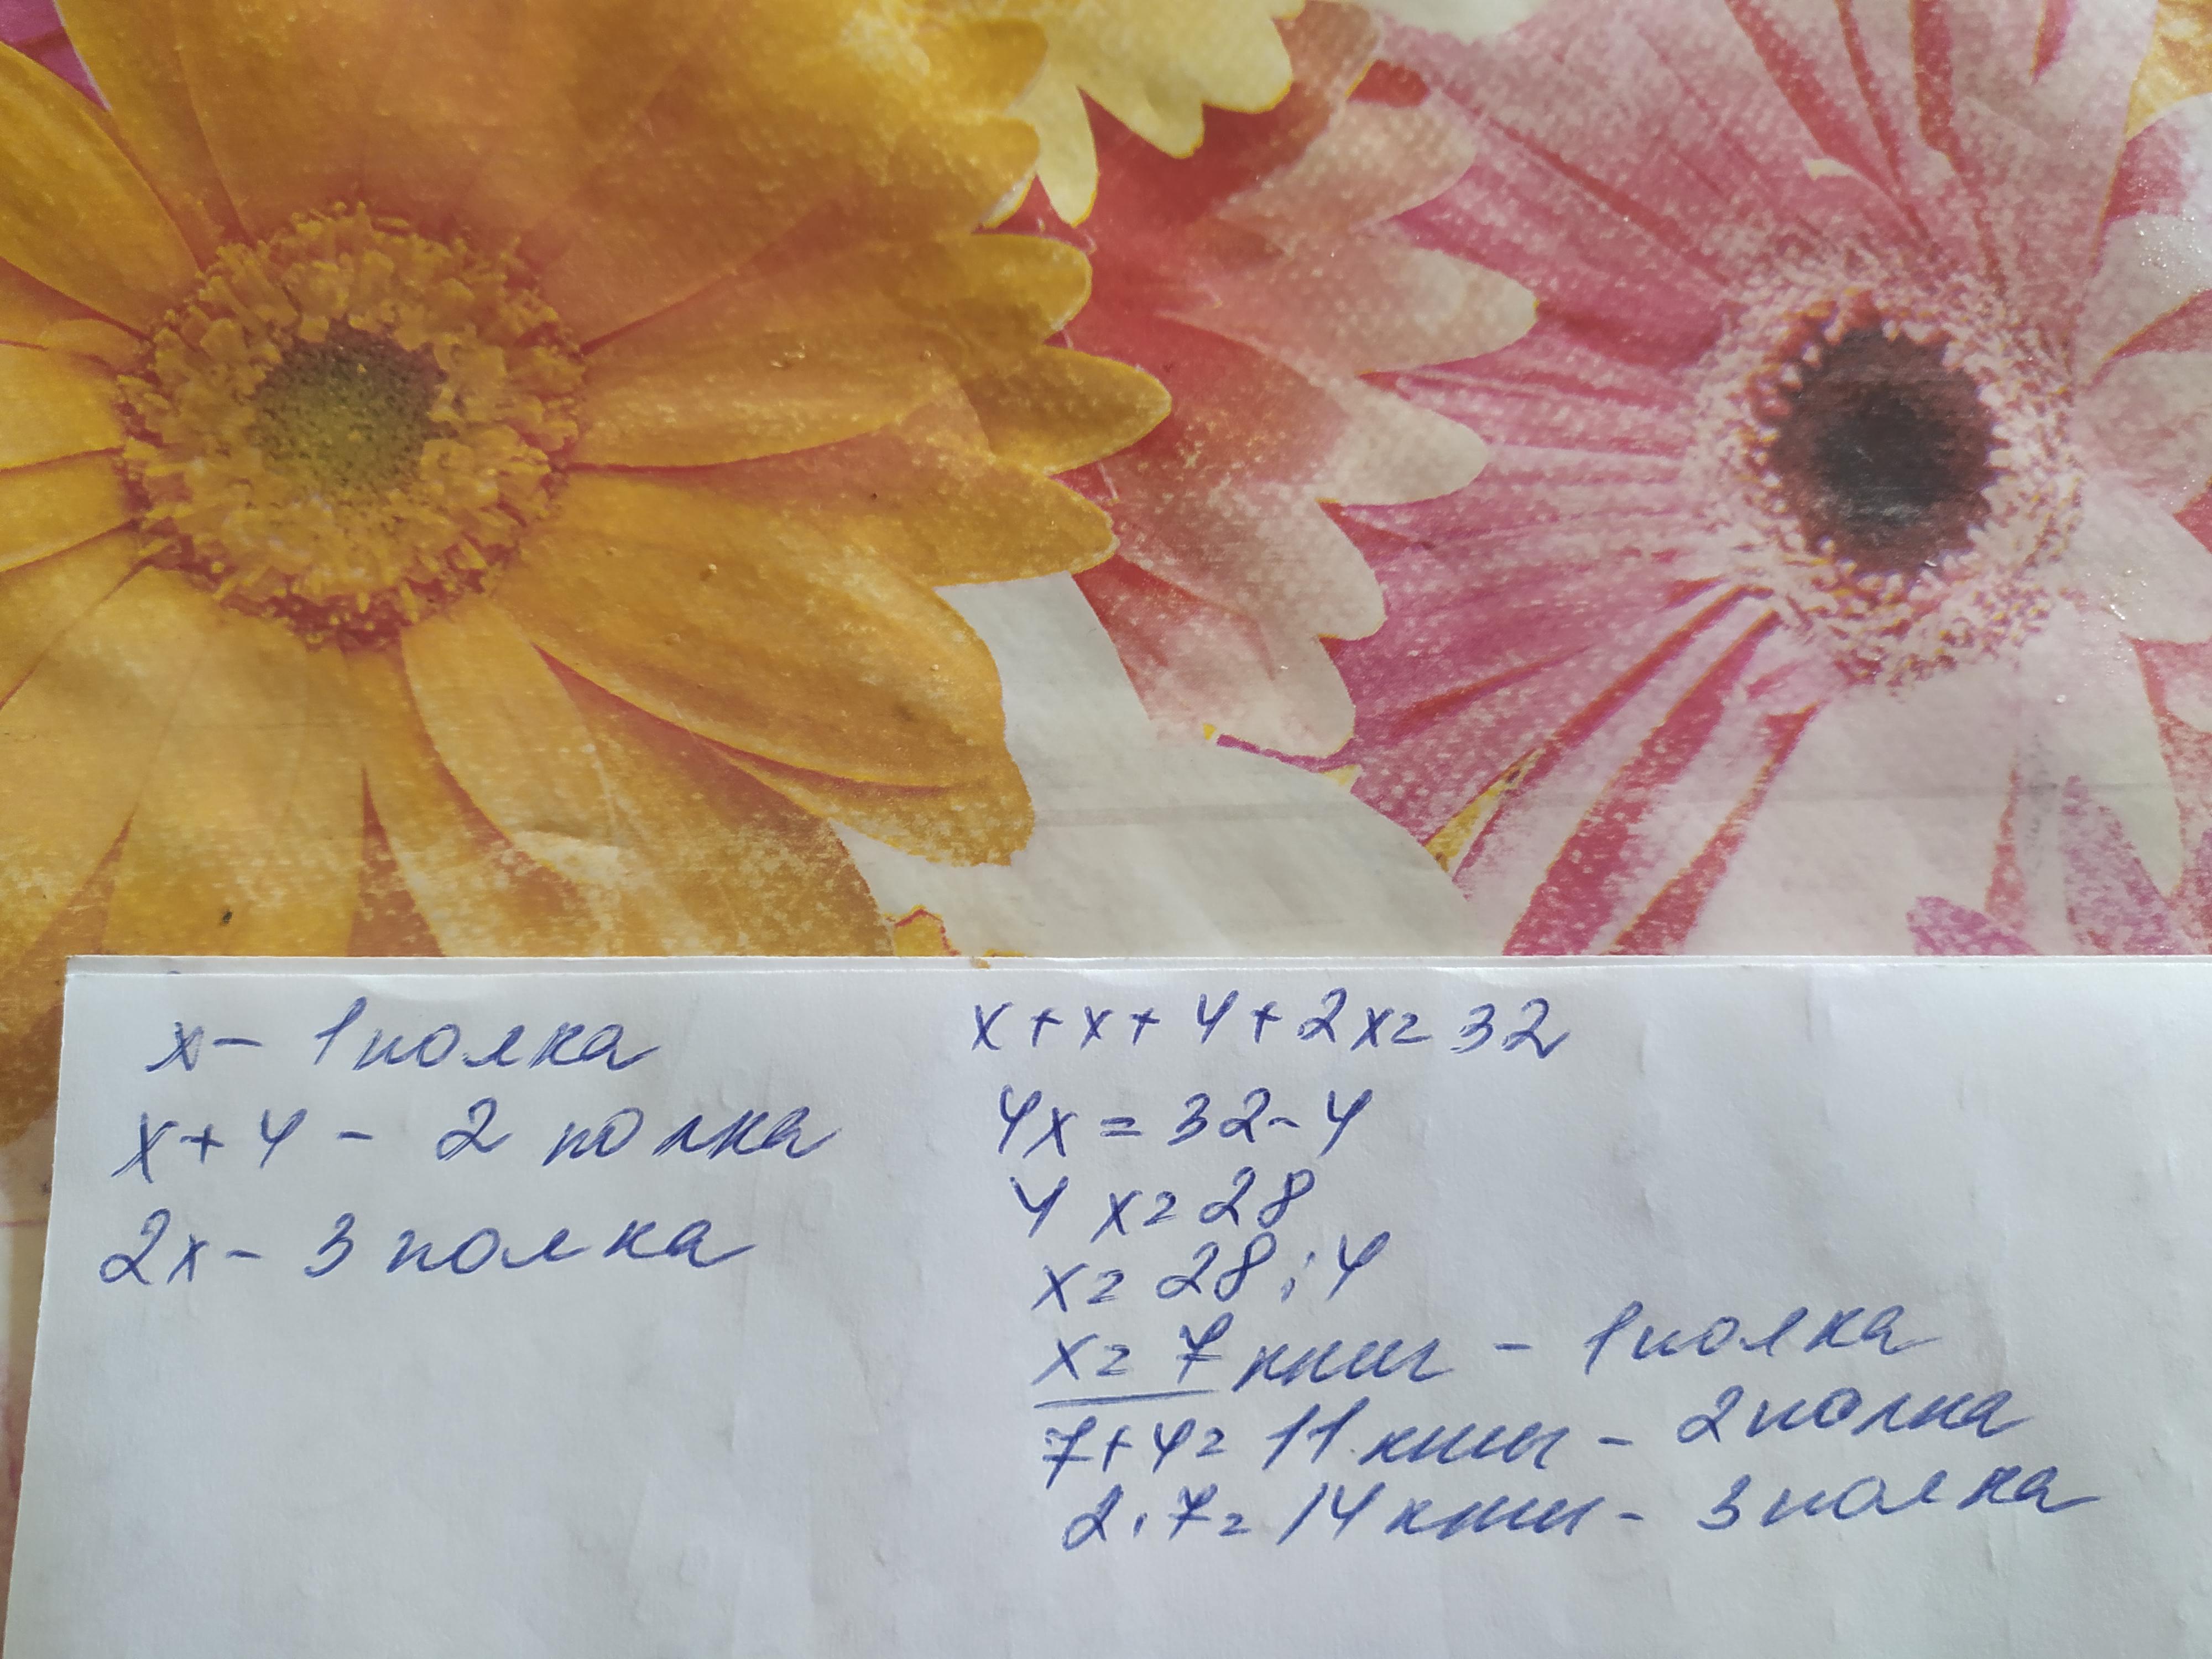 x - 1 полка
x + 4 - 2 полка
2x - 3 полка
x + x + 4 + 2x = 32
4x = 32 - 4
4x = 28
x = 28 : 4
x = 7 книг - 1 полка
7 + 4 = 11 книг - 2 полка
2 · 7 = 14 книг - 3 полка